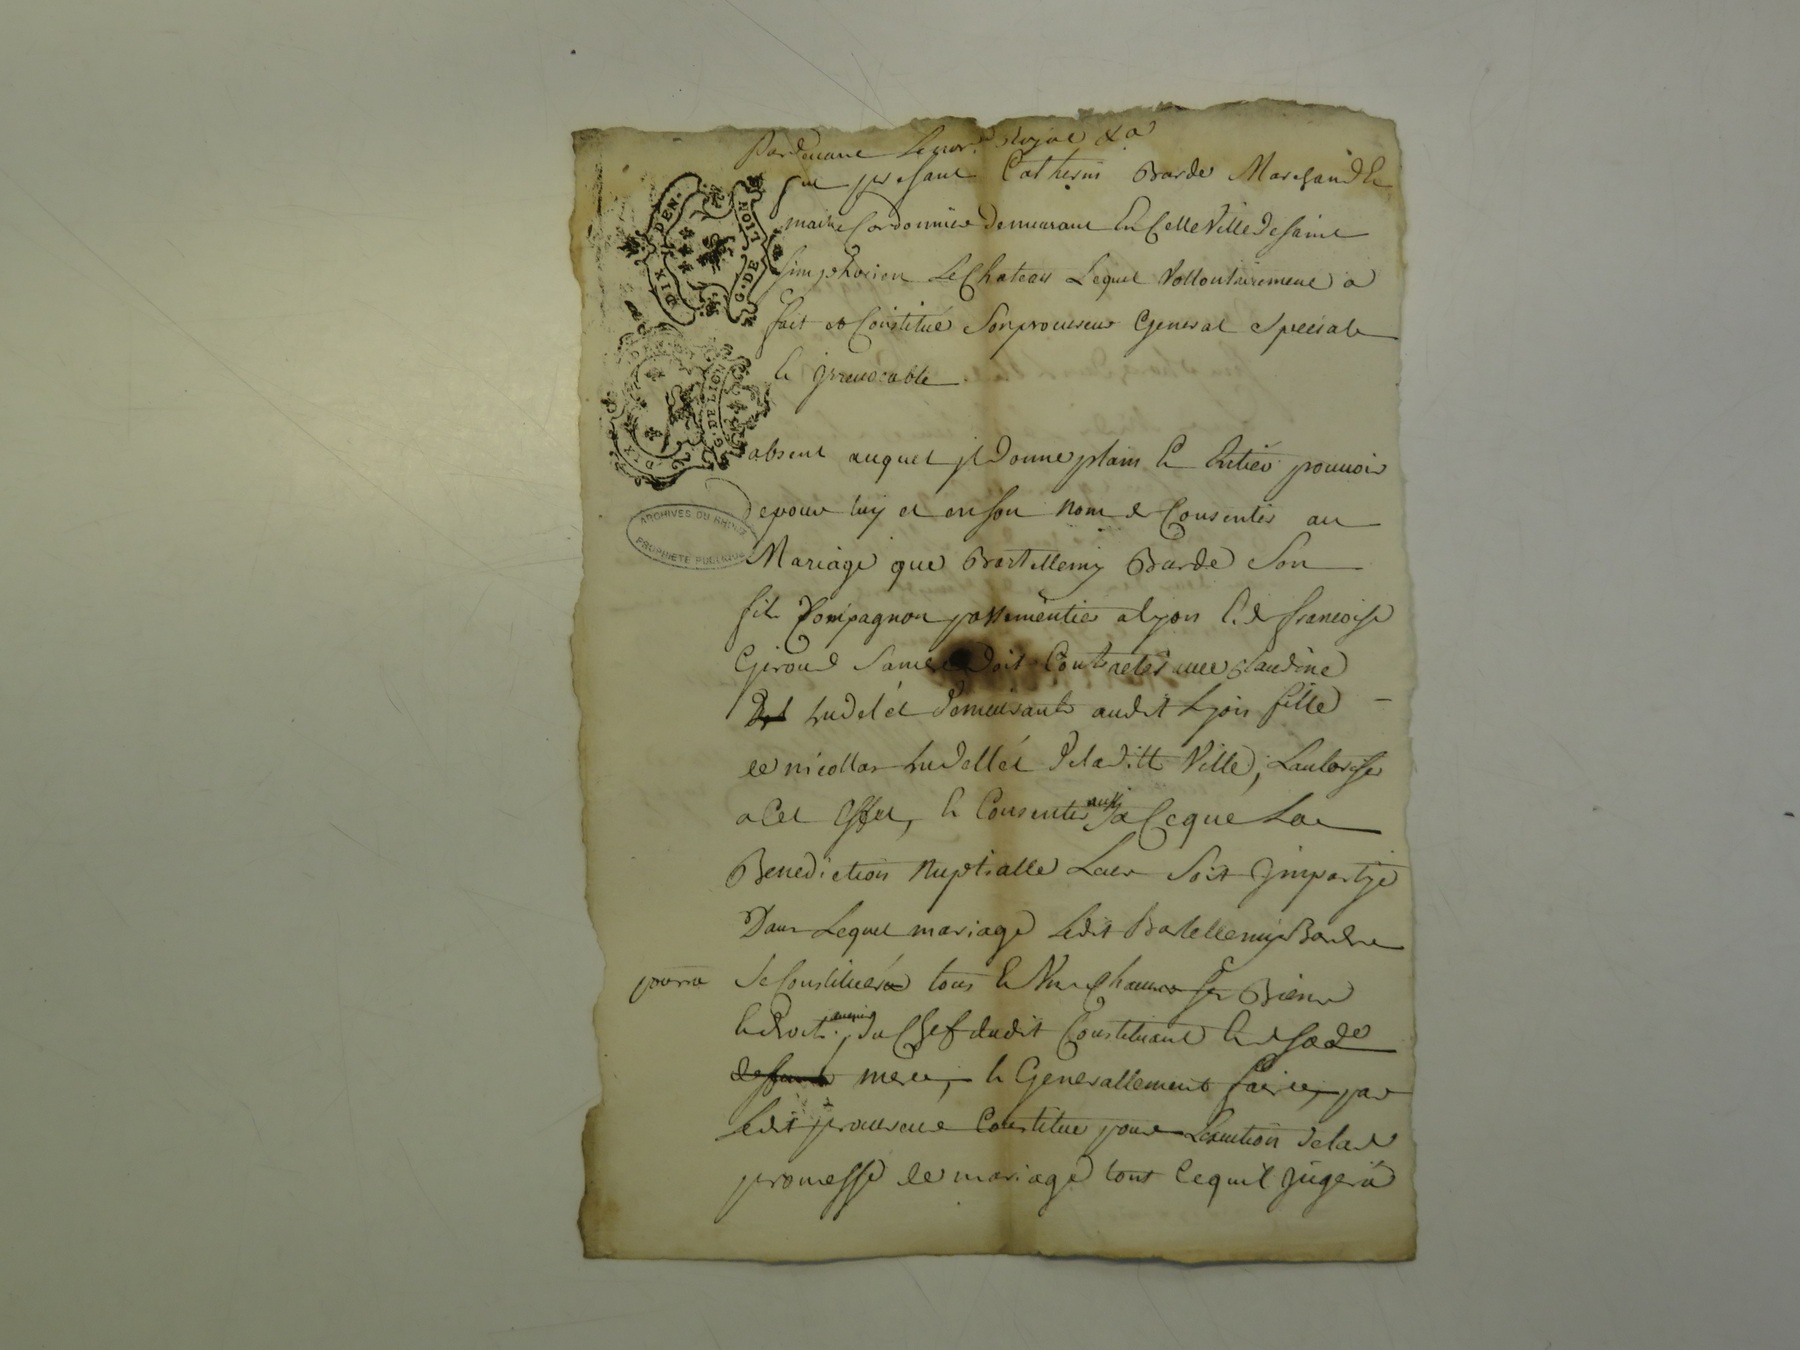 Pardevant Le nore. Royal &a
fut present Catherin Barde Marchand Et
maitre Cordonnier demeurant En Cette Ville de saint
simphorien Le Chateau Lequel Vollontairement a
fait et Constitué Son procureur General Special
Et jrrevocable
absent auquel jl donne plain Et Entier pouvoir
de pour luy et en son nom de Consentir au
Mariage que Bartellemy Barde Son
fils Compagnon passementier a Lyon Et de francoise
Giroud sa mere doit Contracter avec claudine
hudelet demeurante audit Lyon fille
de nicollas hudellet de laditte Ville, Lauthoriser
a Cet Effet, Et Consentir aussy a Ce que La
Benediction nuptialle Leur soit jmpartye
Dans Lequel mariage Ledit Bartellemy Barde
pourra se Constituer tous Et Uns Chacuns ses Biens
Et droits avenir du Chef dudit Constituant Et de sade
mere, Et Generallement faire, par
Ledit procureur Constitué pour Lexecution de lade
promesse de mariage tout Ce quil jugera
DIX DEN.
G. DE LION
NOIT
DIX DEN
G. DE LION
ARCHIVES DU RHONE
PROPRIETE PUBLIQUE